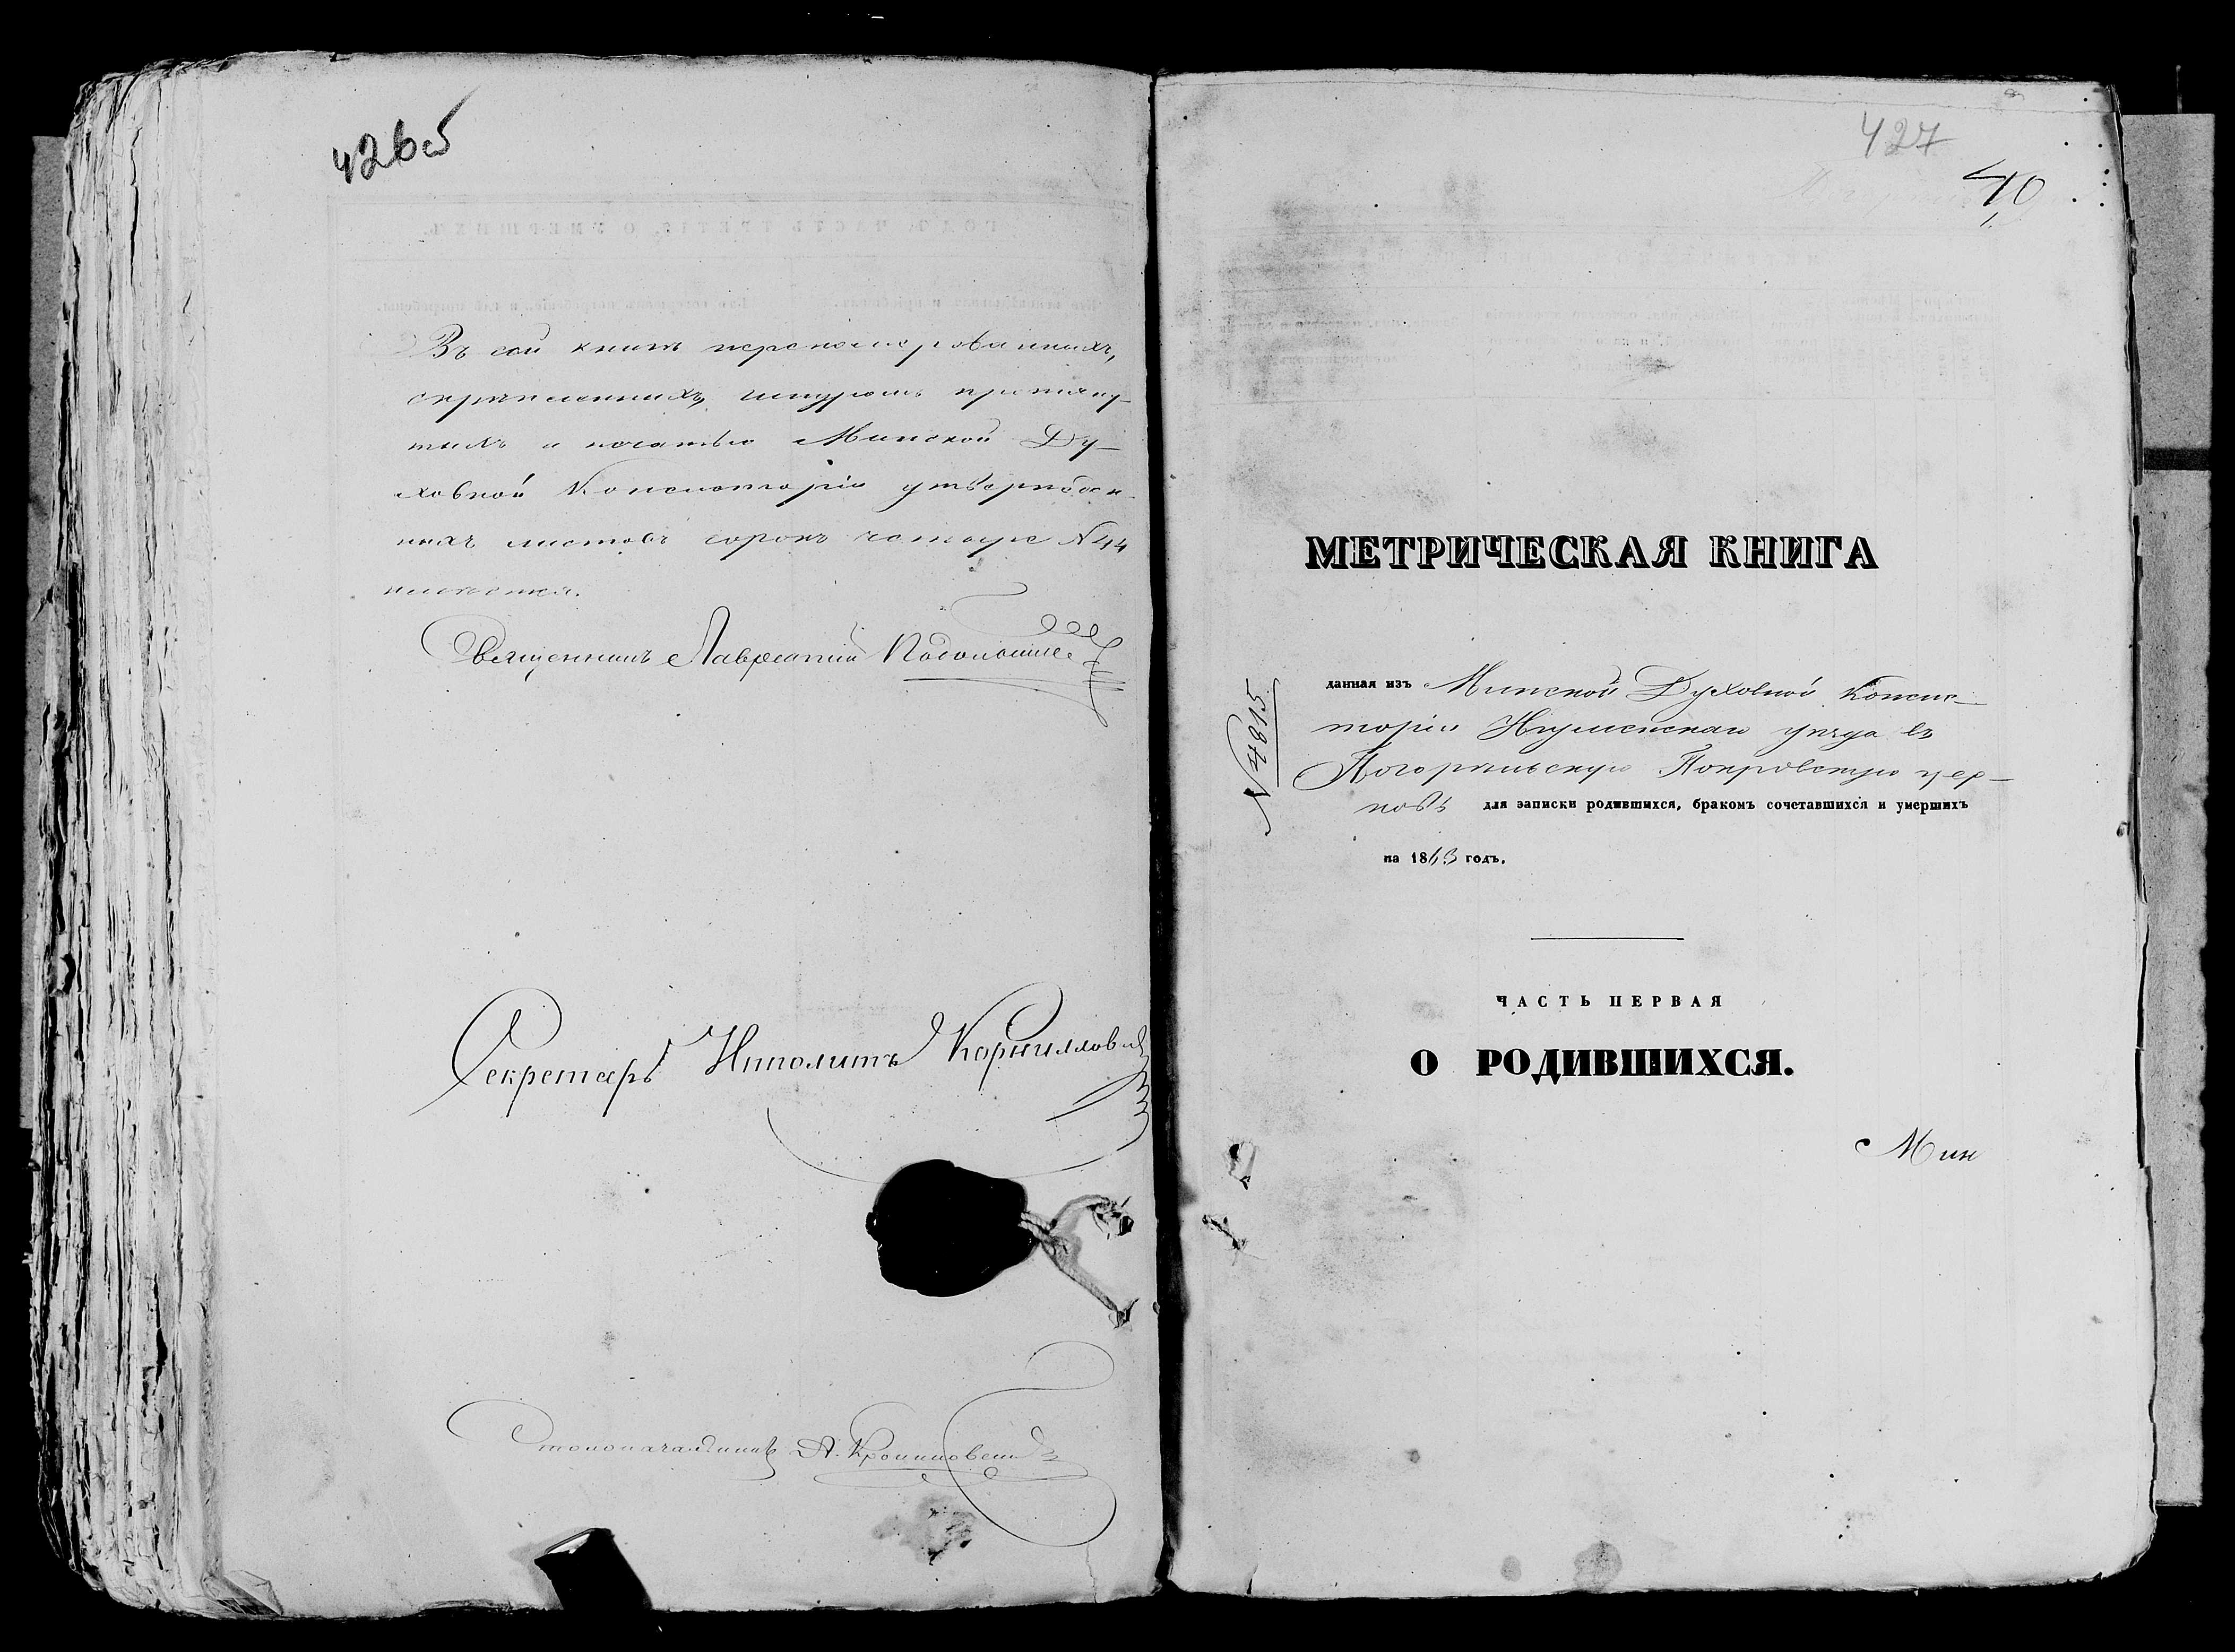 426об
Въ сей книгѣ перенумерованныхъ,
скрѣпленныхъ, шнуромъ протяну-
тыхъ и печатью Минской Ду-
ховной Консисторіи утвержден-
ныхъ листовъ сорокъ четыре N 44
имѣется.
Священникъ Лаврентій
Секретарь Иполитъ Корнилловичъ
Столоначальникъ А.
427
40
МЕТРИЧЕСКАЯ КНИГА
N 4815
данная изъ Минской Духовной Консис-
торіи Игуменскаго уѣзда въ
Погорѣльскую Покровскую цер-
ковь для записки родившихся, бракомъ сочетавшихся и умершихъ
на 1863 годъ.
ЧАСТЬ ПЕРВАЯ
О РОДИВШИХСЯ.
Мин